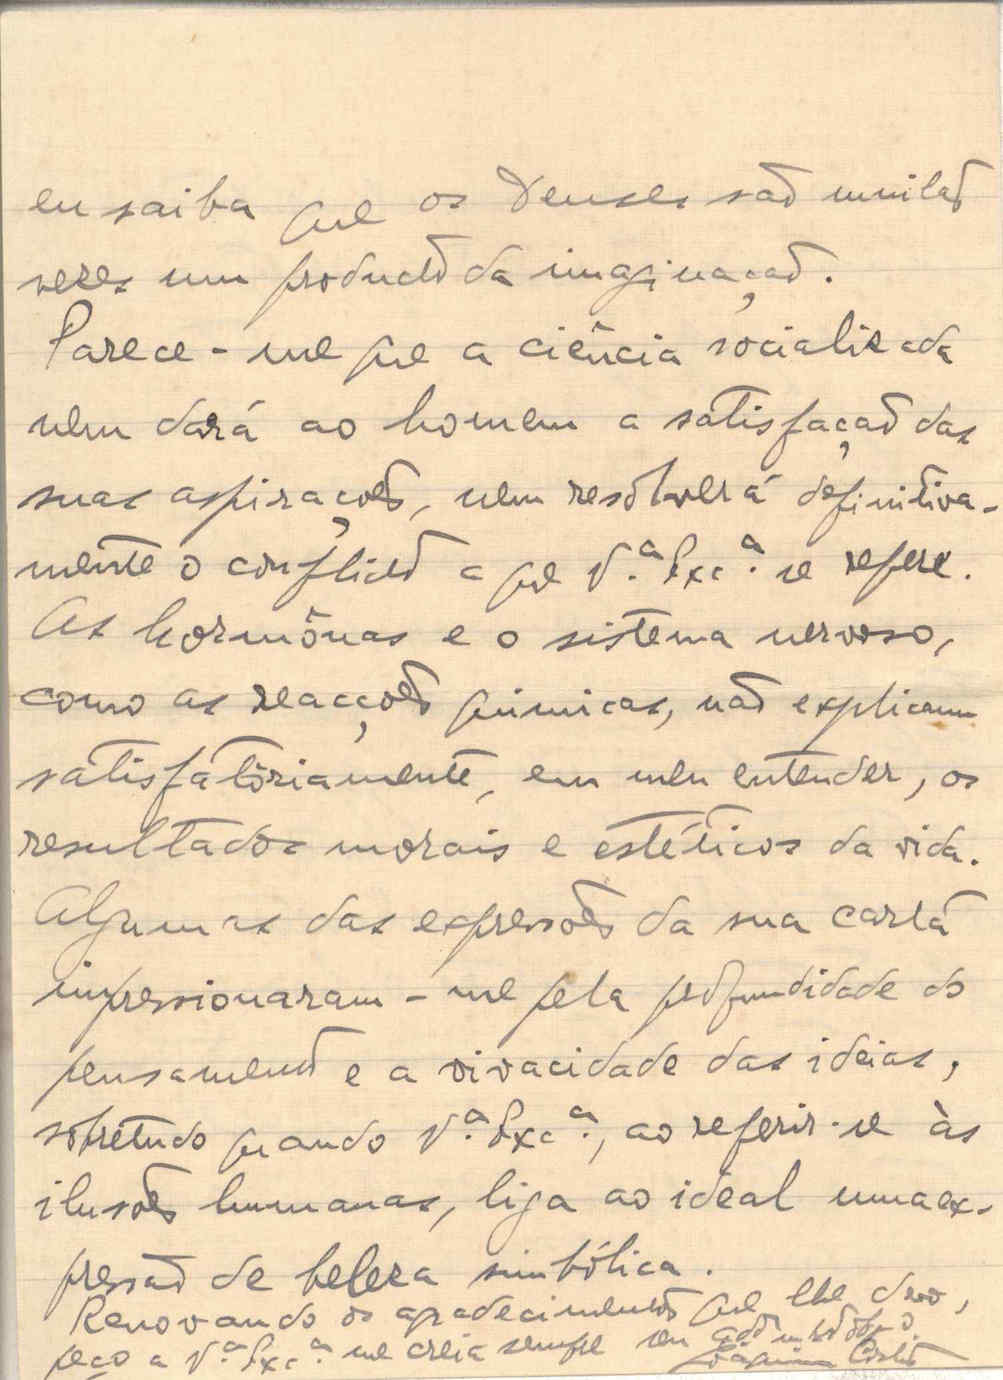 eu saiba que os Deuses são muitas
vezes um producto da imaginação.
Parece-me que a ciência socializada
nem dará ao homem a satisfação das
suas aspirações, nem resolverá definitiva-
mente o conflicto a que V.ª Exc.ª se refere.
As hormônas e o sistema nervoso,
como as reacções quimicas, não explicam
satisfatòriamente, em meu entender, os
resultados morais e estéticos da vida.
Algumas das expressões da sua carta
impressionaram-me pela profundidade do
pensamento e a vivacidade das ideias,
sobretudo quando V.ª Exc.ª, ao referir-se às
ilusões humanas, liga ao ideal uma ex-
pressão de beleza simbólica.
Renovando os agradecimentos que lhe devo,
peço a V.ª Exc.ª me creia sempre seu
Joaquim Costa